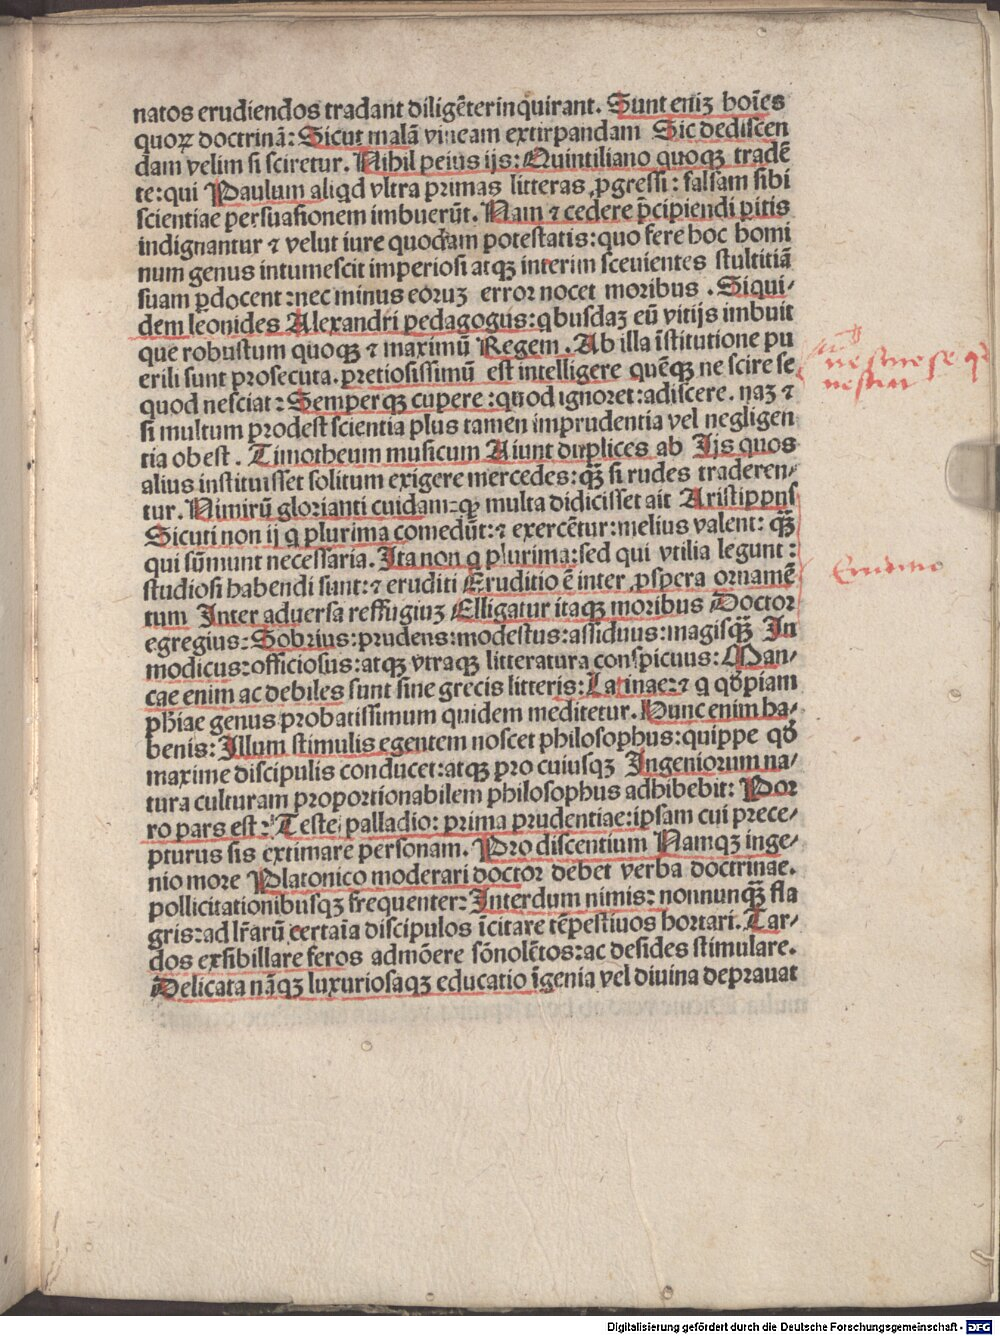 natos erudiendos tradant diligēter inquirant. Sunt eniꝫ hoīes
quoꝝ doctrinā: Sicut malā vineam extirpandam Sic dediscen
dam velim si sciretur. Nihil peius ijs: Quintiliano quoqꝫ tradē
te: qui Paulum aliqd vltra primas litteras ꝓgressi: falsam sibi
scientiae persuasionem imbuerūt. Nam ⁊ cedere p̄cipiendi ꝑitis
indignantur ⁊ velut iure quodam potestatis: quo fere hoc homi
num genus intumescit imperiosi atqꝫ interim sceuientes stultitiā
suam ꝑdocent: nec minus eoruꝫ error nocet moribus. Siqui-
dem leonides Alexandri pedagogus: qbusdaꝫ eū vitijs imbuit
que robustum quoqꝫ ⁊ maximū Regem. Ab illa īstitutione pu
erili sunt prosecuta. pretiosissimū est intelligere quēqꝫ ne scire se
quod nesciat: Semperqꝫ cupere: quod ignoret: adiscere. naꝫ ⁊
si multum prodest scientia plus tamen imprudentia vel negligen
tia obest. Timotheum musicum Aiunt duplices ab Ijs quos
alius instituisset solitum exigere mercedes: qꝫ̄ si rudes traderen-
tur. Nimirū glorianti cuidam: qꝙ multa didicisset ait Aristippus
Sicuti non ij q plurima comedūt: ⁊ exercētur: melius valent: qꝫ̄
qui sūmunt necessaria. Ita non q plurima: sed qui vtilia legunt:
studiosi habendi sunt: ⁊ eruditi Eruditio ē inter ꝓspera ornamē
tum Inter aduersa reffugiuꝫ Elligatur itaqꝫ moribus Doctor
egregius: Sobrius: prudens: modestus: assiduus: magisqꝫ̄ In
modicus: officiosus: atqꝫ vtraqꝫ litteratura conspicuus: Man-
cae enim ac debiles sunt sine grecis litteris: Latinae: ⁊ q qđpiam
phīae genus probatissimum quidem meditetur. Hunc enim ha-
benis: Illum stimulis egentem noscet philosophus: quippe qđ
maxime discipulis conducet: atqꝫ pro cuiusqꝫ Ingeniorum na-
tura culturam proportionabilem philosophus adhibebit: Por
ro pars est: Teste palladio: prima prudentiae: ipsam cui prece-
pturus sis extimare personam. Pro discentium Namqꝫ inge-
nio more Platonico moderari doctor debet verba doctrinae.
pollicitationibusqꝫ frequenter: Interdum nimis: nonnunqꝫ̄ fla
gris: ad lr̄arū certaīa discipulos īcitare tēpestiuos hortari. Tar-
dos exsibillare feros admōere sōnolētos: ac desides stimulare.
Delicata nāqꝫ luxuriosaqꝫ educatio īgenia vel diuina deprauat